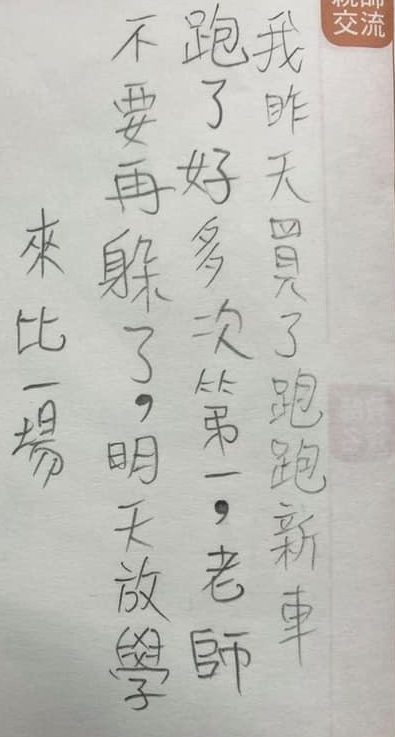 親師
交流
我昨天買了跑跑新車
跑了好多次第一，老師
不要再躲了，明天放學
來比一場